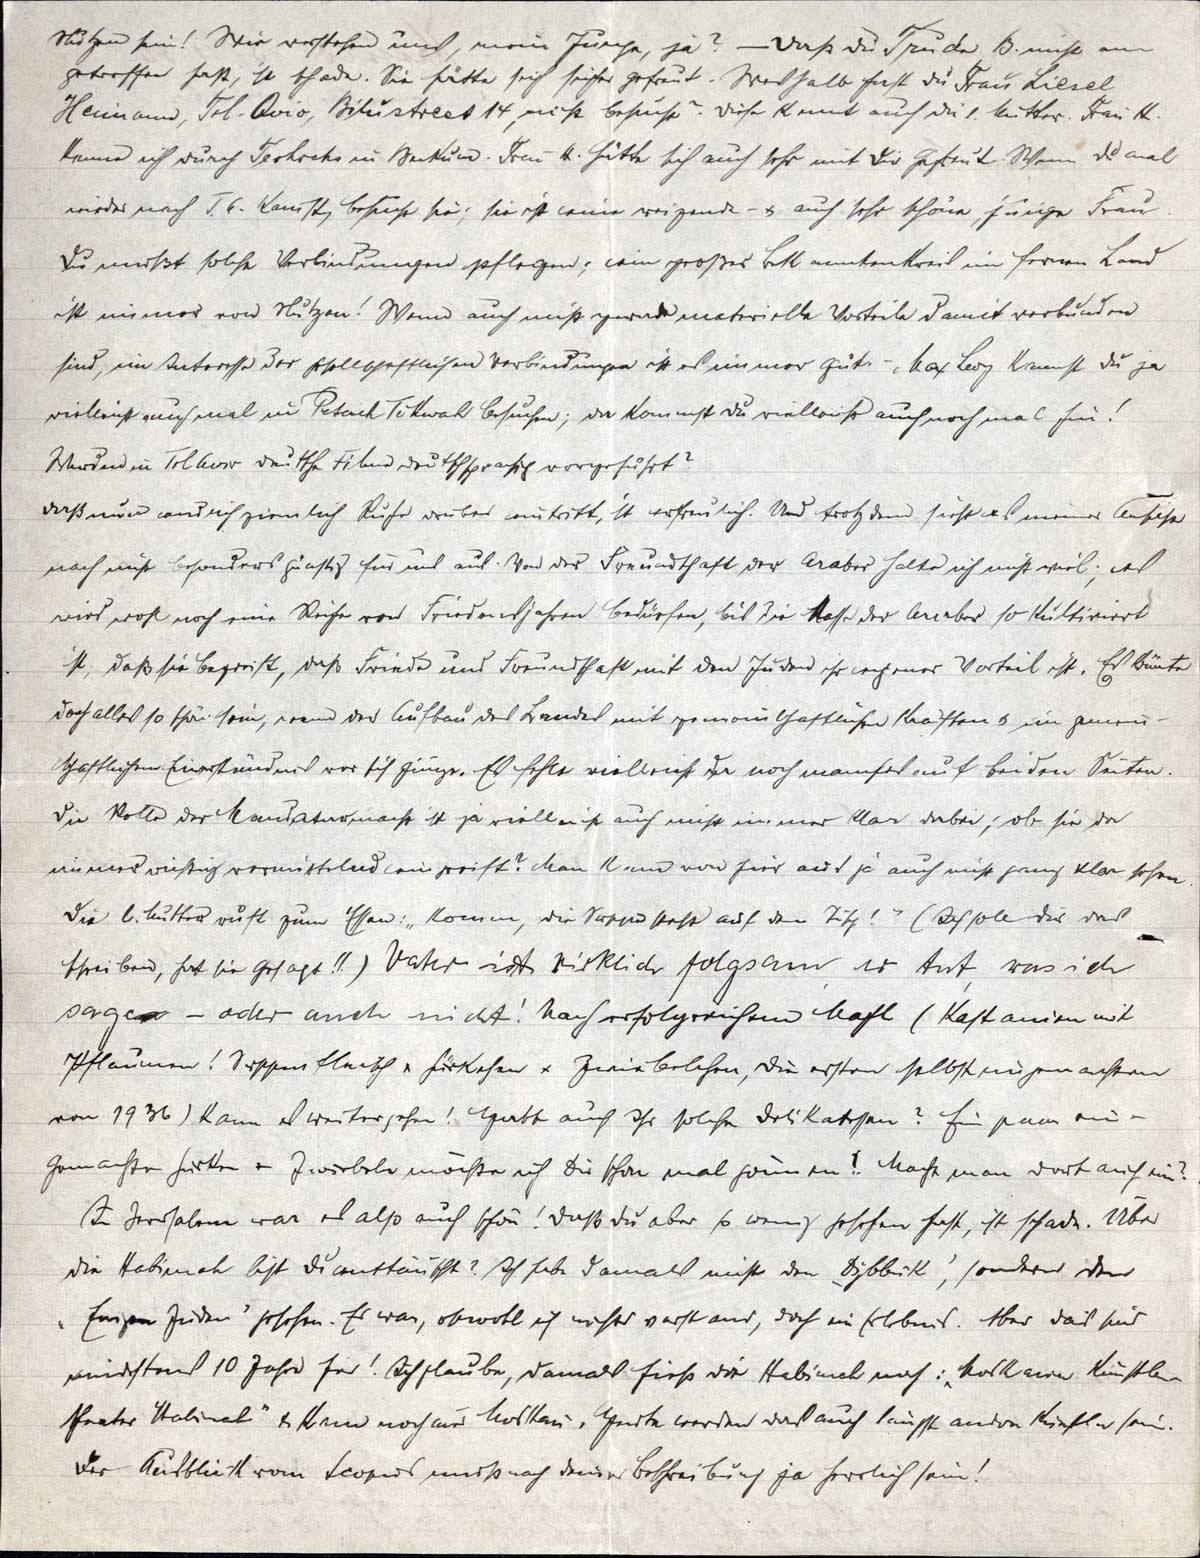 Nutzen sein! Wir verstehen uns, mein Junge, ja? – Daß du Trude B. nicht an-
getroffen hast, ist schade. Sie hätte sich sicher gefreut. Weshalb hast du Frau Liesel
Heimann, Tel-Aviv, Bilustreet 14, nicht besucht? Diese kennt auch die l. Mutter. Frau H.
kenne ich durch in Borkum. Frau H. hätte sich auch sehr mit dir gefreut. Wenn du mal
wieder nach T. A. kommst, besuche sie; sie ist eine reizende – & auch sehr schöne, junge Frau.
Du mußt solche Verbindungen pflegen; ein großer Bekanntenkreis im fernen Land
ist immer von Nutzen! Wenn auch nicht gerade materielle Vorteile damit verbunden
sind, im Interesse der gesellschaftlichen Verbindungen ist es immer gut. – Max Levy kannst du ja
vielleicht auch mal in Petach Tikwah besuchen; da kommst du vielleicht auch noch mal hin!
Werden in Tel Aviv deutsche Filme deutschsprachig vorgeführt?
Daß nun endlich ziemlich Ruhe drüben eintritt, ist erfreulich. Und trotzdem sieht es meiner Ansicht
nach nicht besonders günstig für uns aus. Von der Freundschaft der Araber halte ich nicht viel; es
wird wohl noch eine Reihe von Friedensjahren bedürfen, bis die Masse der Araber so kultiviert
ist, daß sie begreift, daß Friede und Freundschaft mit den Juden ihr eigener Vorteil ist. Es könnte
doch alles so schön sein, wenn der Aufbau des Landes mit gemeinschaftlichen Kräften & im gemein-
schaftlichen Einverständnis vor sich ginge. Es fehlt vielleicht da noch manches auf beiden Seiten.
Die Rolle der Mandatarmacht ist ja vielleicht auch nicht immer klar dabei; ob sie da
immer richtig vermittelnd eingreift? Man kann von hier aus ja auch nicht ganz klar sehen.
Die l. Mutter ruft zum Essen: „Komm, die Suppe steht auf dem Tisch!“ (Ich soll dir das
schreiben, hat sie gesagt!!) Vater ist wirklich folgsam, er tut, was ich
sage – oder auch nicht! Nach erfolgreichem Mahl (Kastanien mit
Pflaumen! Suppenfleisch & Gürkchen & Zwiebelchen, die ersten selbsteingemachten
von 1936) kann es weitergehen! Habt auch Ihr solche Delikatessen? Ein paar ein-
gemachte Gurken & Zwiebeln möchte ich Dir schon mal gönnen! Macht man dort auch ein?
In Jerusalem war es also auch schön! Daß du aber so wenig gesehen hast, ist schade. Über
die Habimah bist du enttäuscht? Ich habe damals nicht den „Dybbuk“, sondern den
„Ewigen Juden“ gesehen. Es war, obwohl ich nichts verstand, doch ein Erlebnis. Aber das sind
mindestens 10 Jahre her! Ich glaube, damals hieß die Habimah noch: „Moskauer Künstler-
theater Habimah“ & kam noch aus Moskau. Heute werden das auch längst andre Künstler sein.
Der Ausblick vom Scopus muß nach deiner Beschreibung ja herrlich sein!